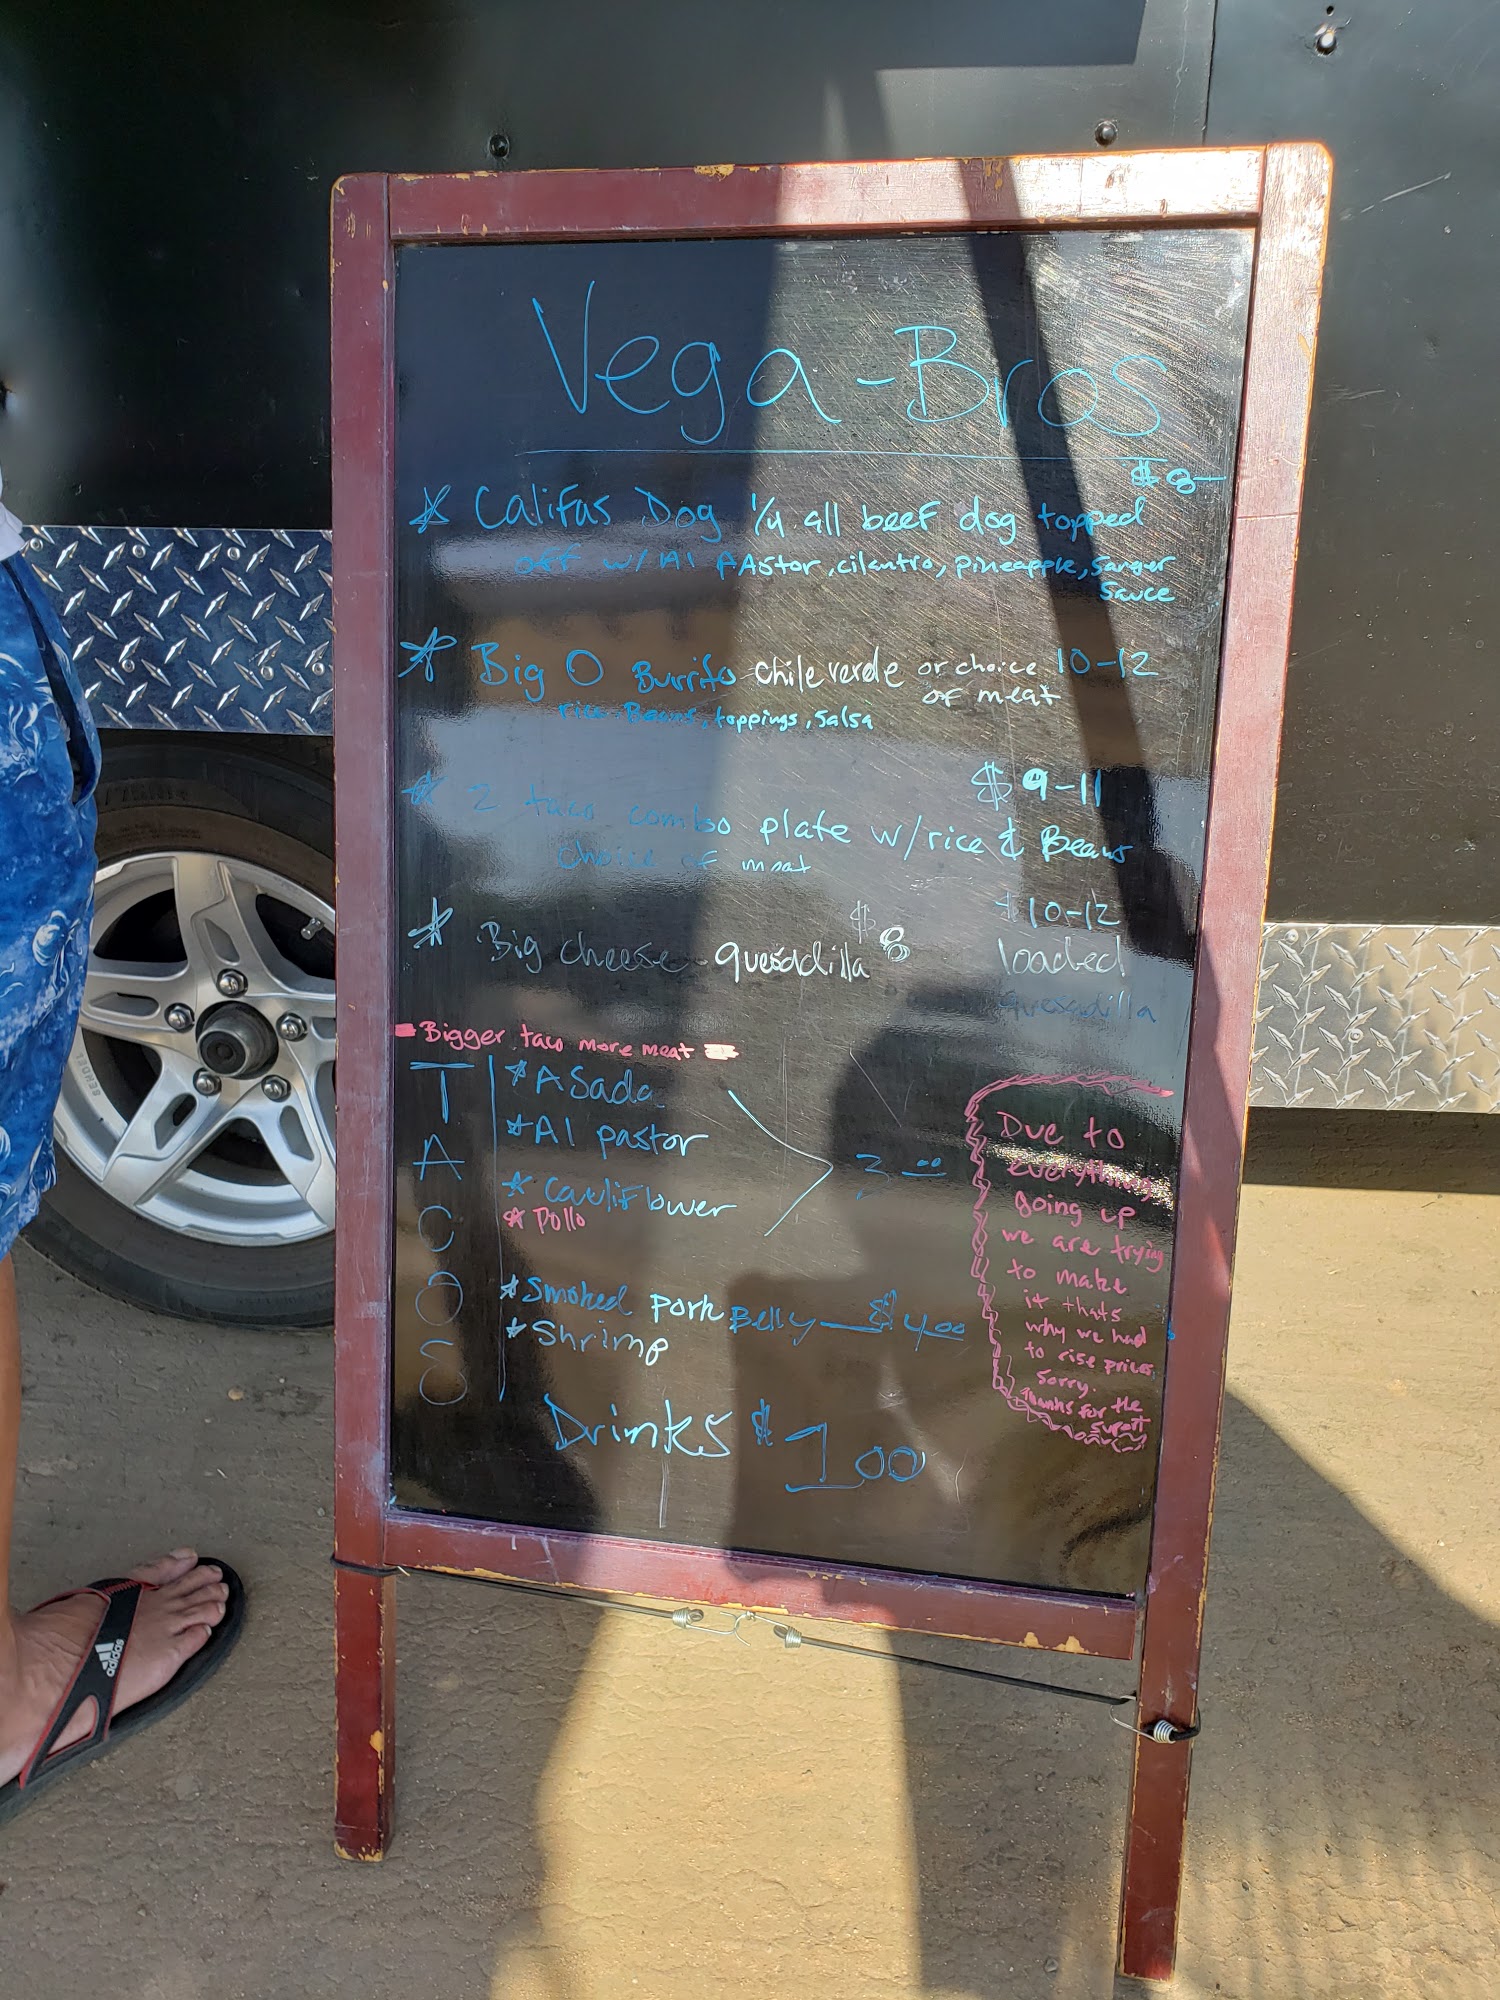 Vega-Bros
$8-
* Califas Dog 1/4 all beef dog topped
off w/ Al PAstor, cilantro, pineapple, Sanger
Sauce
* Big O Burrito chile verde or choice 10-12
of meat
rice-Beans, toppings, salsa
$9-11
* 2 taco combo plate w/rice & Beans
choice of meat
* Big cheese quesadilla $8
$10-12
loaded
quesadilla
Bigger taco more meat
TACOS
* ASada
* Al pastor
* Cauliflower
* Pollo
3.00
* Smoked pork Belly — $4.00
* Shrimp
Drinks $1.00
Due to
everything
going up
we are trying
to make
it thats
why we had
to rise prices
sorry.
thanks for the
suport
adidas